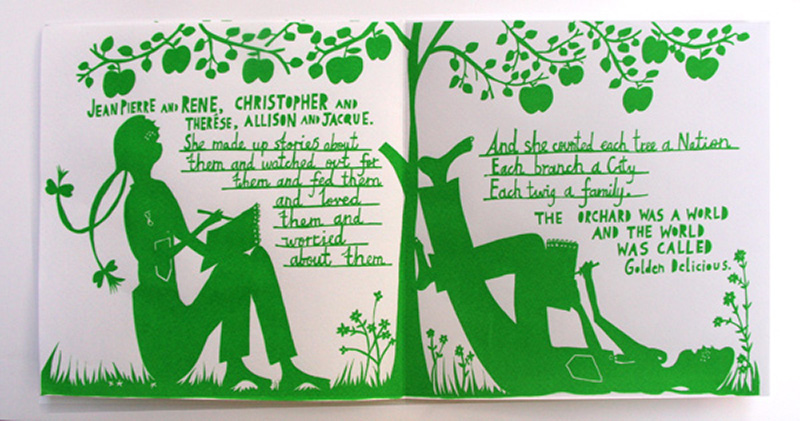 JEAN PIERRE AND RENE, CHRISTOPHER AND
THERÈSE, ALLISON AND JACQUE.
She made up stories about
them and watched out for
them and fed them
and loved
them and
worried
about them
And she counted each tree a Nation
Each branch a City
Each twig a family.
THE ORCHARD WAS A WORLD
AND THE WORLD
WAS CALLED
Golden Delicious.